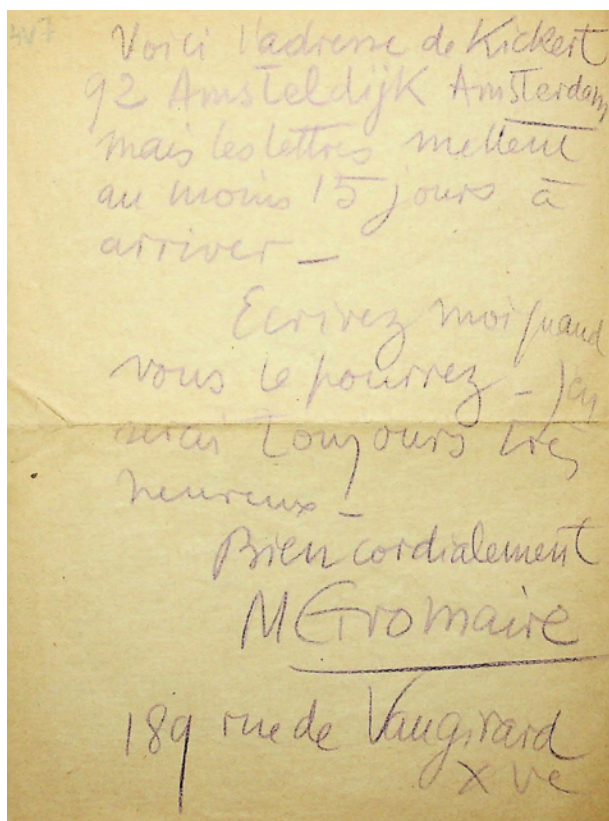 Voici l'adresse de Kickert
92 Amsteldijk Amsterdam
mais les lettres mettent
au moins 15 jours à
arriver –
Ecrivez moi quand
vous le pourrez – J'en
serai toujours très
heureux –
Bien cordialement
M Gromaire
189 rue de Vaugirard
XVe